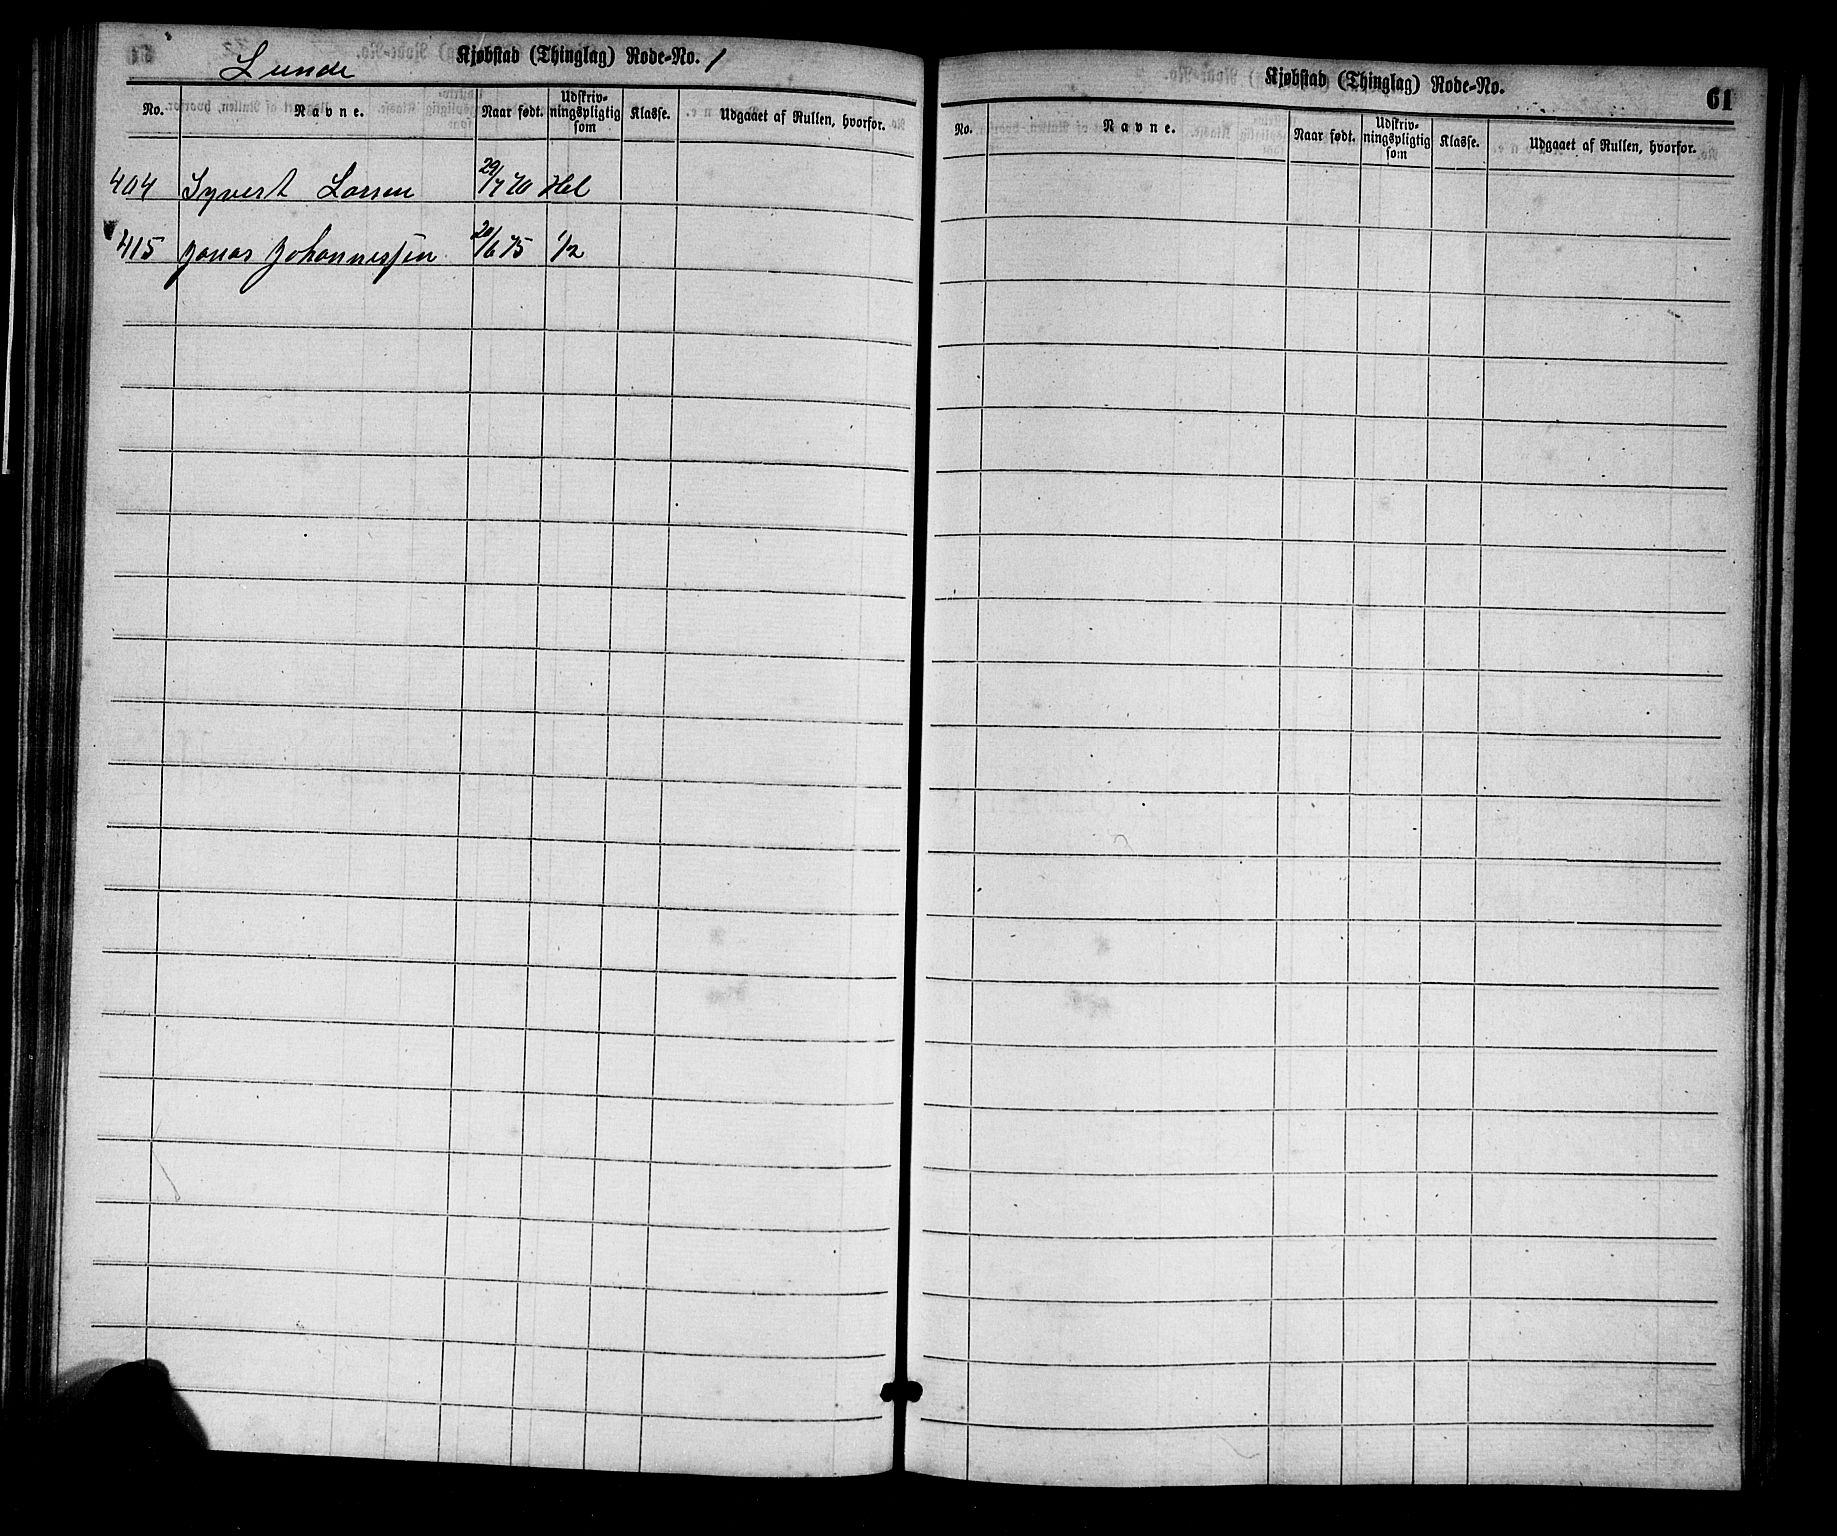 Lunde Kjøbstad (Thinglag) Rode-No. 1
No. Navne. Naar født. Udskriv-ningspligtig som Klasse. Udgaaet af Rullen, hvorfor.
404 Syvert Larsen 29/7 70 Hel
415 Jonas Johannessen 20/6 75 1/2
Kjøbstad (Thinglag) Rode-No. 61
No. Navne. Naar født. Udskriv-ningspligtig som Klasse. Udgaaet af Rullen, hvorfor.